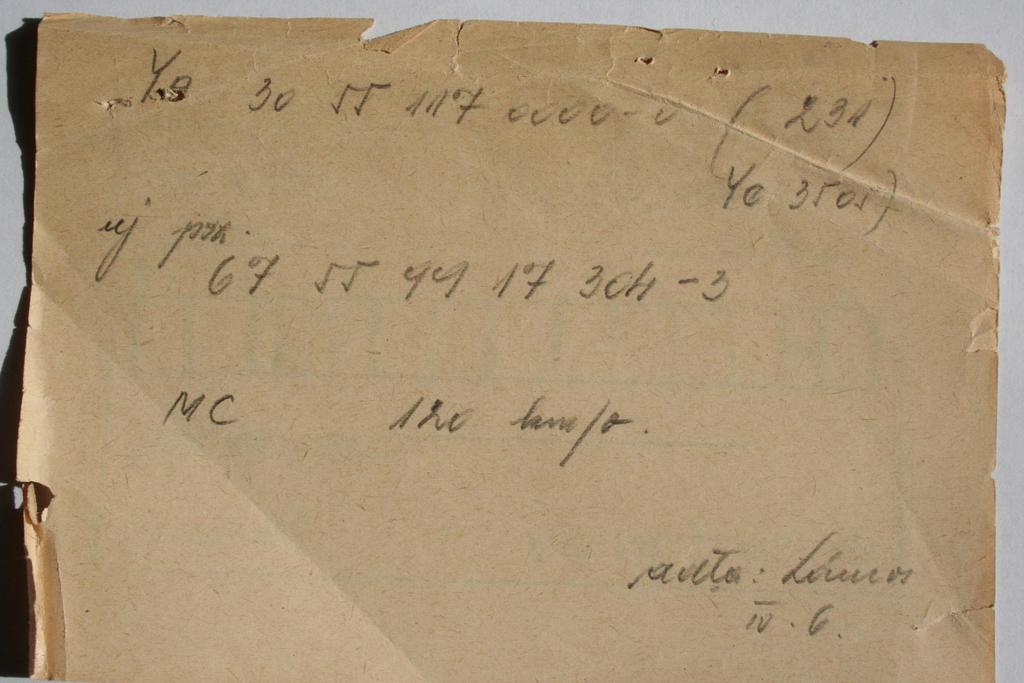 Ya 30 55 117 0000-0 ( 231)
Ya 3505)
uj psz.
67 55 99 17 304-3
MC 120 km/ó.
adta: Lános
IV. 6.